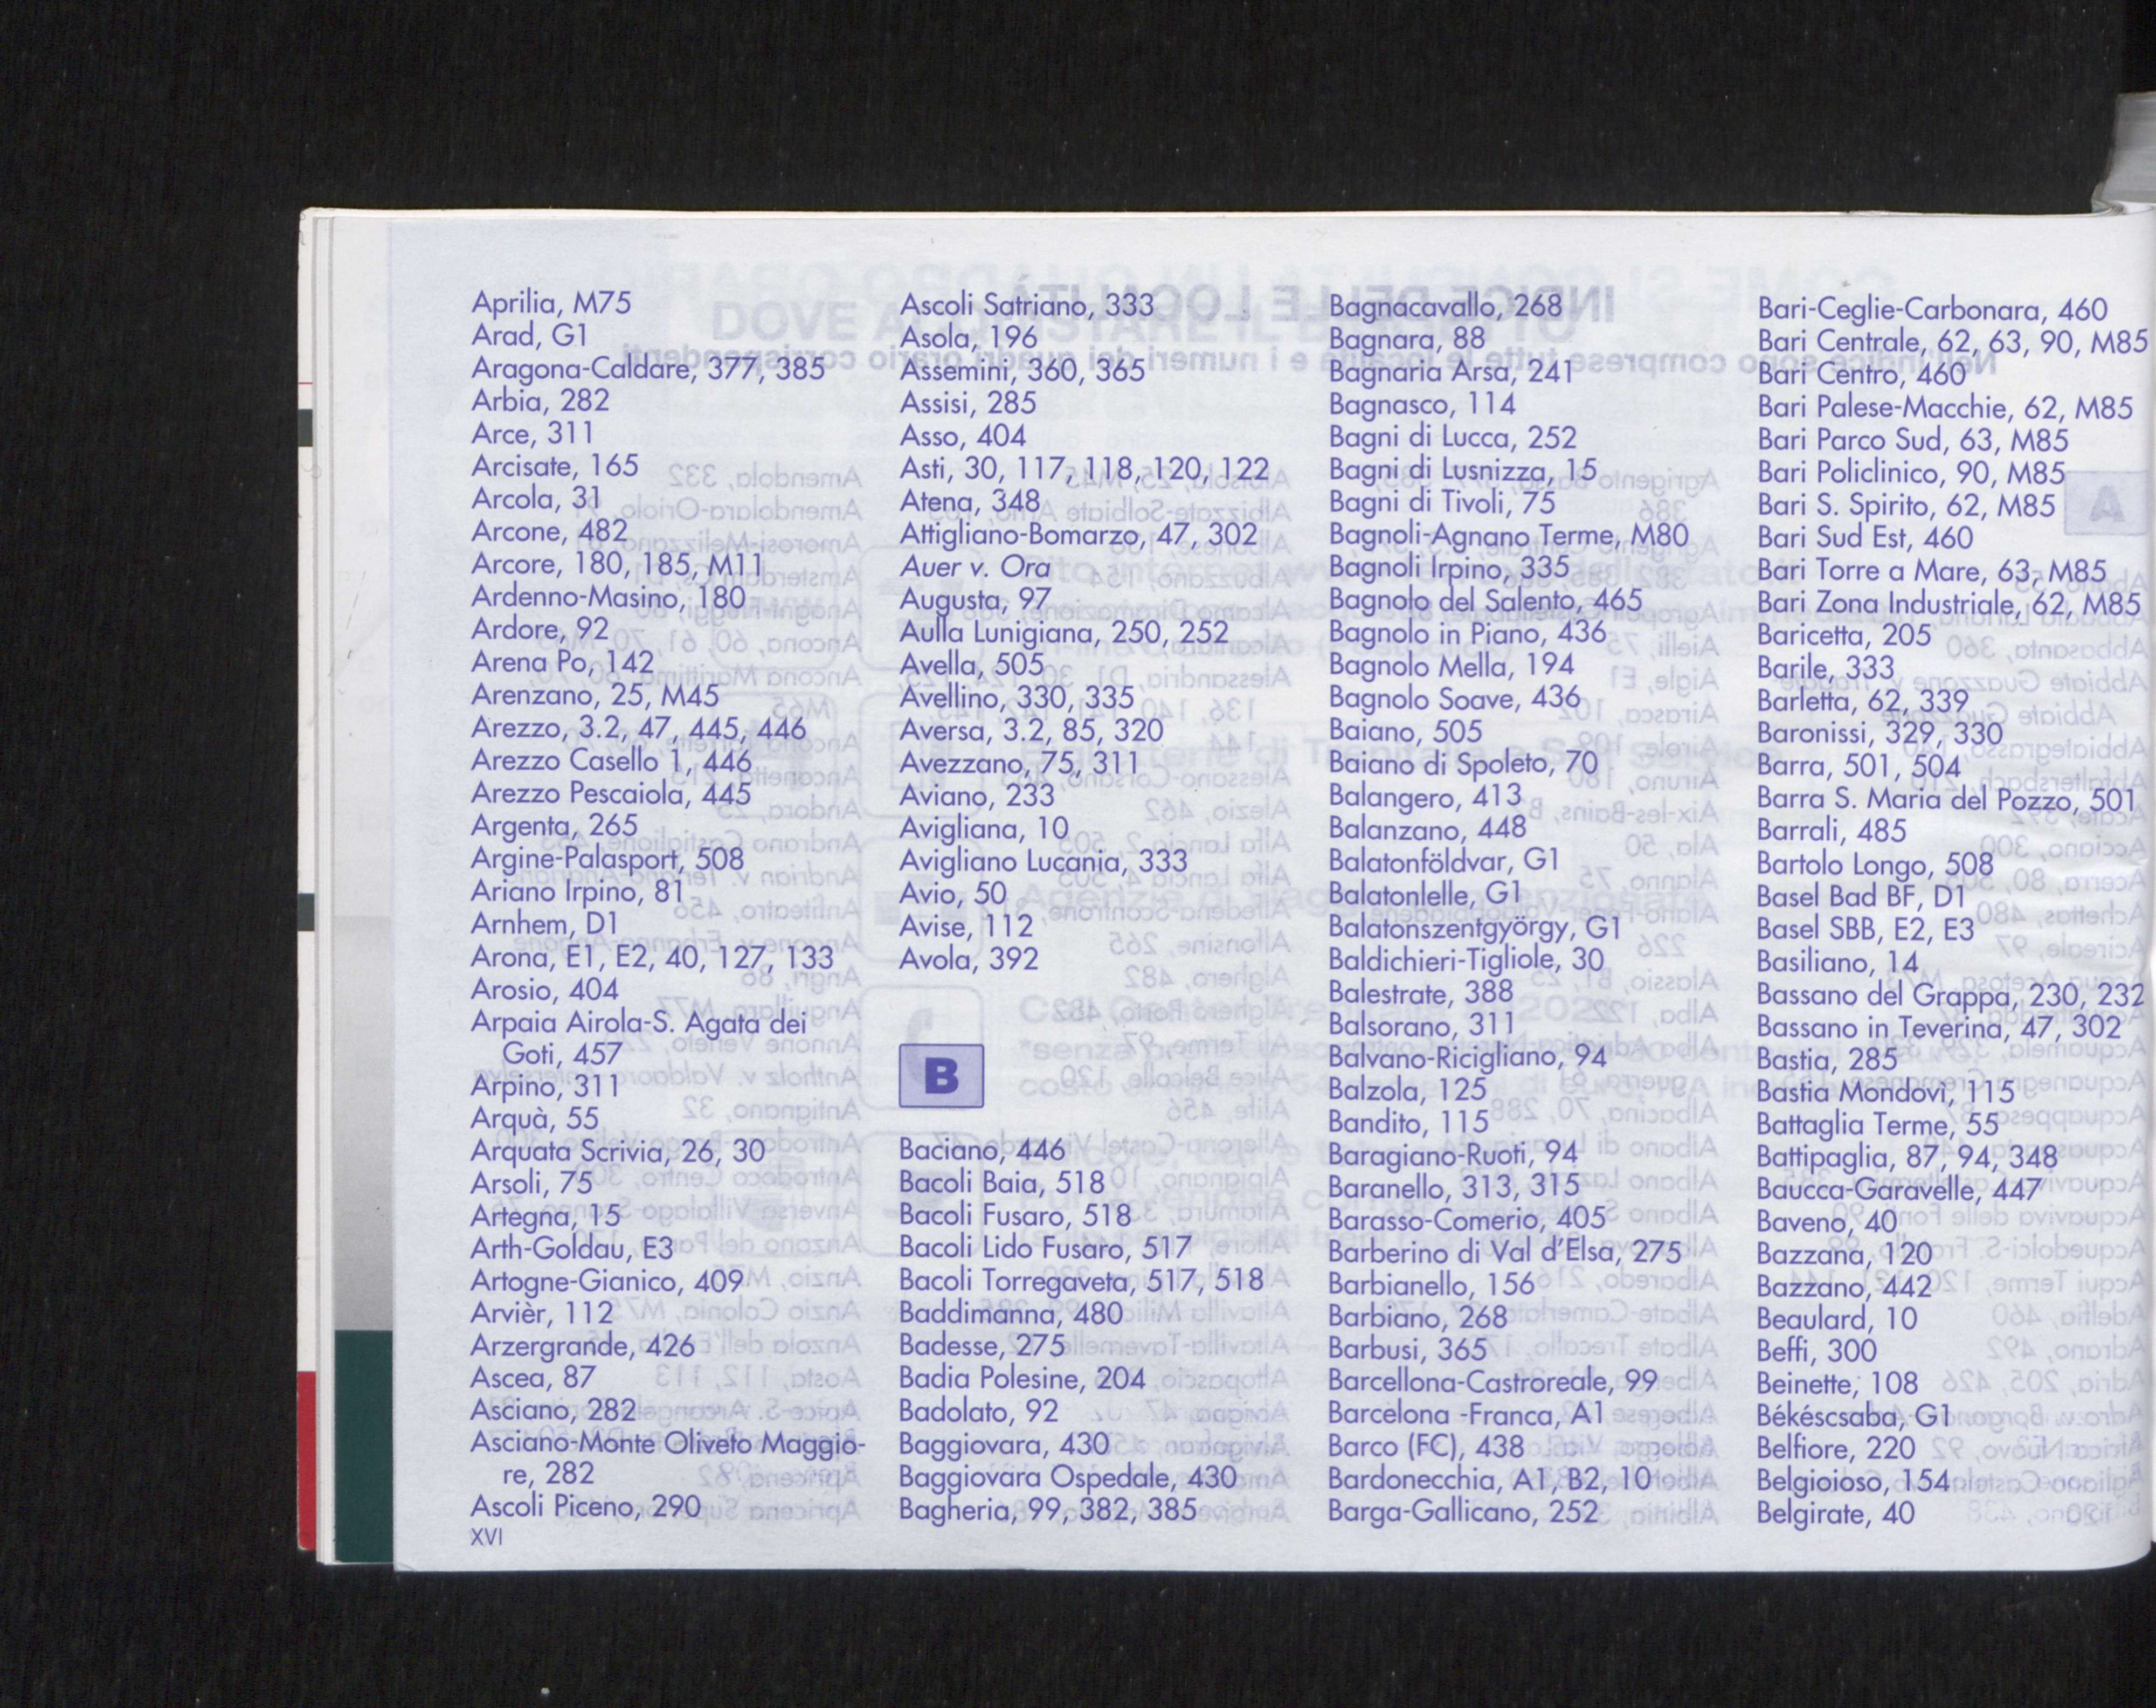 Aprilia, M75
Arad, G1
Aragona-Caldare, 377, 385
Arbia, 282
Arce, 311
Arcisate, 165
Arcola, 31
Arcone, 482
Arcore, 180, 185, M11
Ardenno-Masino, 180
Ardore, 92
Arena Po, 142
Arenzano, 25, M45
Arezzo, 3.2, 47, 445, 446
Arezzo Casello 1, 446
Arezzo Pescaiola, 445
Argenta, 265
Argine-Palasport, 508
Ariano Irpino, 81
Arnhem, D1
Arona, E1, E2, 40, 127, 133
Arosio, 404
Arpaia Airola-S. Agata dei
Goti, 457
Arpino, 311
Arquà, 55
Arquata Scrivia, 26, 30
Arsoli, 75
Artegna, 15
Arth-Goldau, E3
Artogne-Gianico, 409
Arvièr, 112
Arzergrande, 426
Ascea, 87
Asciano, 282
Asciano-Monte Oliveto Maggio-
re, 282
Ascoli Piceno, 290
XVI
Ascoli Satriano, 333
Asola, 196
Assemini, 360, 365
Assisi, 285
Asso, 404
Asti, 30, 117, 118, 120, 122
Atena, 348
Attigliano-Bomarzo, 47, 302
Auer v. Ora
Augusta, 97
Aulla Lunigiana, 250, 252
Avella, 505
Avellino, 330, 335
Aversa, 3.2, 85, 320
Avezzano, 75, 311
Aviano, 233
Avigliana, 10
Avigliano Lucania, 333
Avio, 50
Avise, 112
Avola, 392
B
Baciano, 446
Bacoli Baia, 518
Bacoli Fusaro, 518
Bacoli Lido Fusaro, 517
Bacoli Torregaveta, 517, 518
Baddimanna, 480
Badesse, 275
Badia Polesine, 204
Badolato, 92
Baggiovara, 430
Baggiovara Ospedale, 430
Bagheria, 99, 382, 385
Bagnacavallo, 268
Bagnara, 88
Bagnaria Arsa, 241
Bagnasco, 114
Bagni di Lucca, 252
Bagni di Lusnizza, 15
Bagni di Tivoli, 75
Bagnoli-Agnano Terme, M80
Bagnoli Irpino, 335
Bagnolo del Salento, 465
Bagnolo in Piano, 436
Bagnolo Mella, 194
Bagnolo Soave, 436
Baiano, 505
Baiano di Spoleto, 70
Balangero, 413
Balanzano, 448
Balatonföldvar, G1
Balatonlelle, G1
Balatonszentgyörgy, G1
Baldichieri-Tigliole, 30
Balestrate, 388
Balsorano, 311
Balvano-Ricigliano, 94
Balzola, 125
Bandito, 115
Baragiano-Ruoti, 94
Baranello, 313, 315
Barasso-Comerio, 405
Barberino di Val d'Elsa, 275
Barbianello, 156
Barbiano, 268
Barbusi, 365
Barcellona-Castroreale, 99
Barcelona -Franca, A1
Barco (FC), 438
Bardonecchia, A1, B2, 10
Barga-Gallicano, 252
Bari-Ceglie-Carbonara, 460
Bari Centrale, 62, 63, 90, M85
Bari Centro, 460
Bari Palese-Macchie, 62, M85
Bari Parco Sud, 63, M85
Bari Policlinico, 90, M85
Bari S. Spirito, 62, M85
Bari Sud Est, 460
Bari Torre a Mare, 63, M85
Bari Zona Industriale, 62, M85
Baricetta, 205
Barile, 333
Barletta, 62, 339
Baronissi, 329, 330
Barra, 501, 504
Barra S. Maria del Pozzo, 501
Barrali, 485
Bartolo Longo, 508
Basel Bad BF, D1
Basel SBB, E2, E3
Basiliano, 14
Bassano del Grappa, 230, 232
Bassano in Teverina, 47, 302
Bastia, 285
Bastia Mondovì, 115
Battaglia Terme, 55
Battipaglia, 87, 94, 348
Baucca-Garavelle, 447
Baveno, 40
Bazzana, 120
Bazzano, 442
Beaulard, 10
Beffi, 300
Beinette, 108
Békéscsaba, G1
Belfiore, 220
Belgioioso, 154
Belgirate, 40